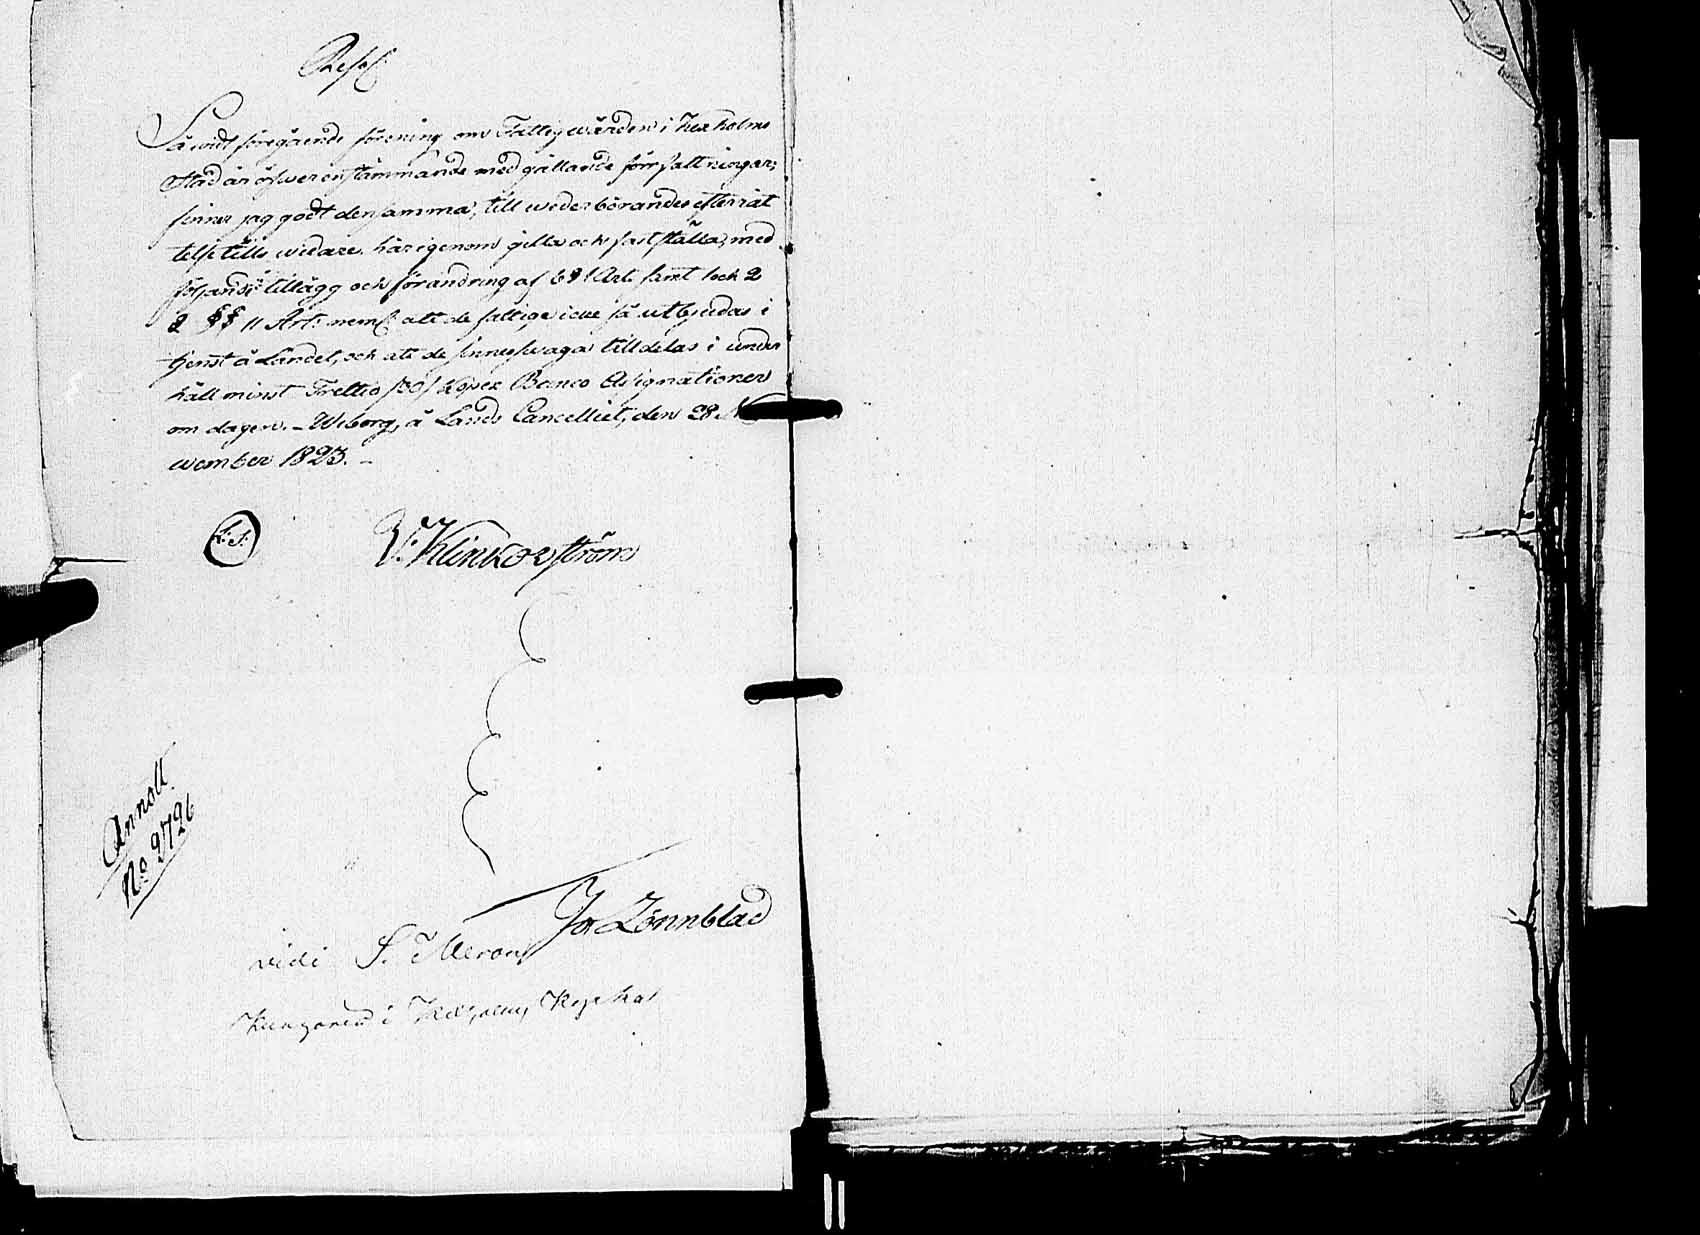 Resol:
Så vidt föregående förening om Fattigwården i Kexholms
Stad är öfwerensstämmande med gällande författningar;
finner jag godt densamma, till wederbörandes efterrät
telse tills widare härigenom gilla och fastställa, med
följande tillägg och förändring af 6 § 1 Art. samt 1 och 2
§§ 11 Art: neml: att de fattige icke få utbjudas i
tjenst å Landet, och att de sinnesswaga tilldelas i under
håll minst Trettio /30/ Kopek Banco Assignationer
om dagen. – Wiborg, å Lands Cancelliet, den 28 No
wember 1823. –
L: S:
Klinkowström
Annott.
No: 2726
Lönnblad
vidi S. Meron
i